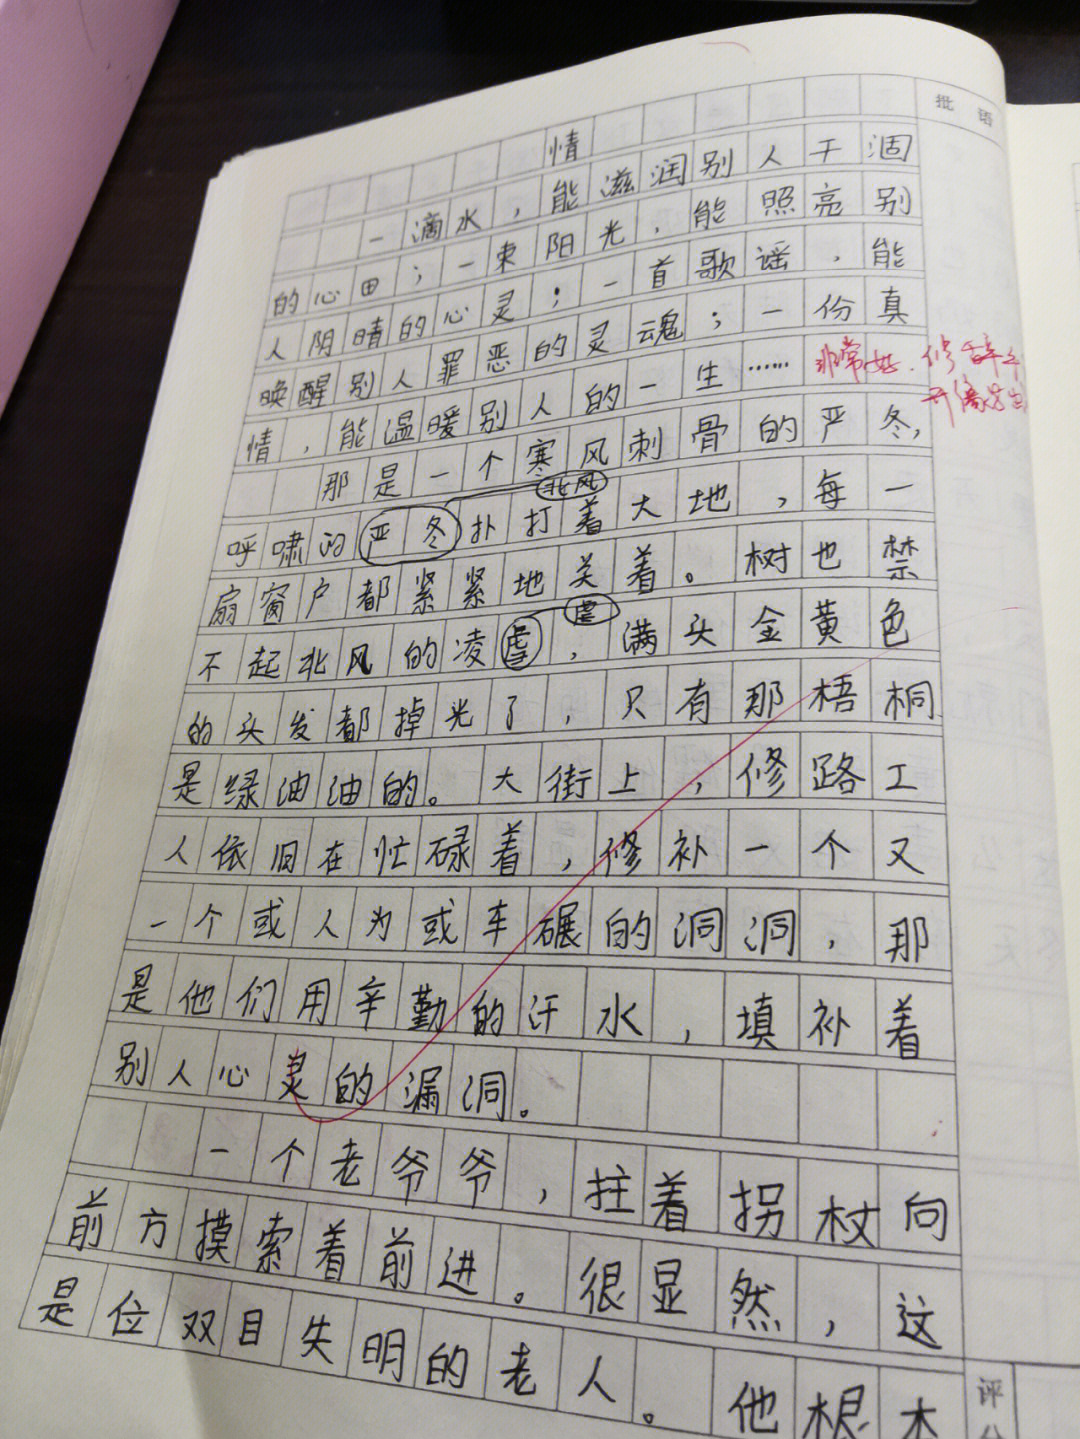 批语
情
一滴水，能滋润别人干涸
的心田；一束阳光，能照亮别
人阴晴的心灵；一首歌谣，能
唤醒别人罪恶的灵魂；一份真
情，能温暖别人的一生……
非常好.修辞
开篇
那是一个寒风刺骨的严冬，
北风
呼啸的严冬扑打着大地，每一
扇窗户都紧紧地关着。树也禁
虐
不起北风的凌虐，满头金黄色
的头发都掉光了，只有那梧桐
是绿油油的。大街上，修路工
人依旧在忙碌着，修补一个又
一个或人为或车碾的洞洞，那
是他们用辛勤的汗水，填补着
别人心灵的漏洞。
一个老爷爷，拄着拐杖向
前方摸索着前进。很显然，这
是位双目失明的老人。他根本
评